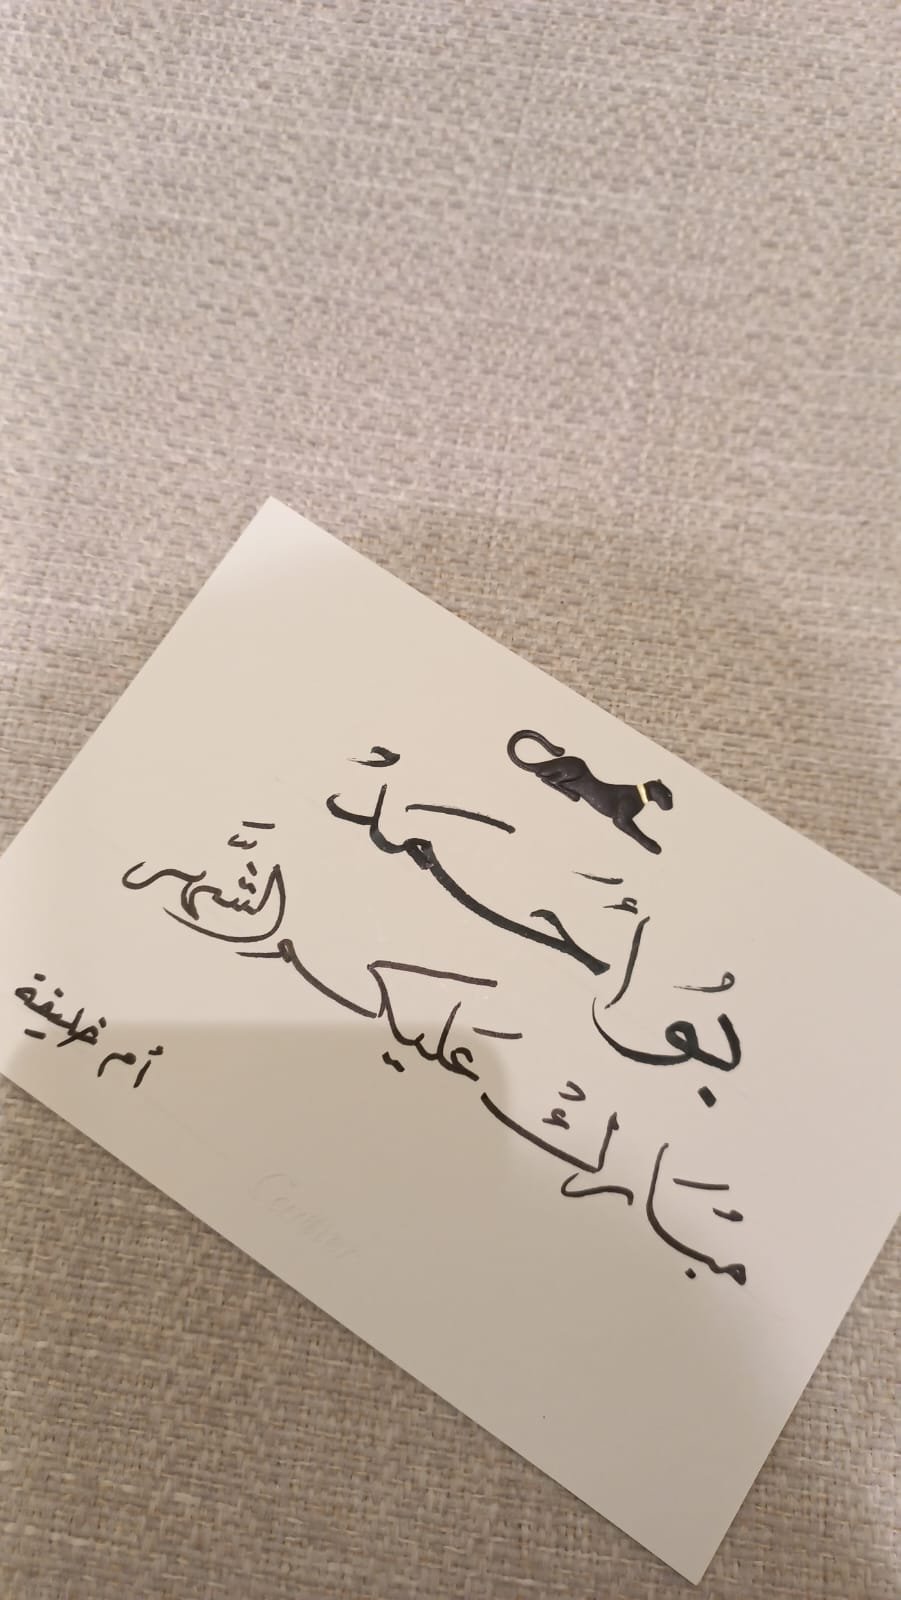 بُو أَحَمدُ
مبَُارك عَليكم الشَّهر
أم خليفة
Cartier